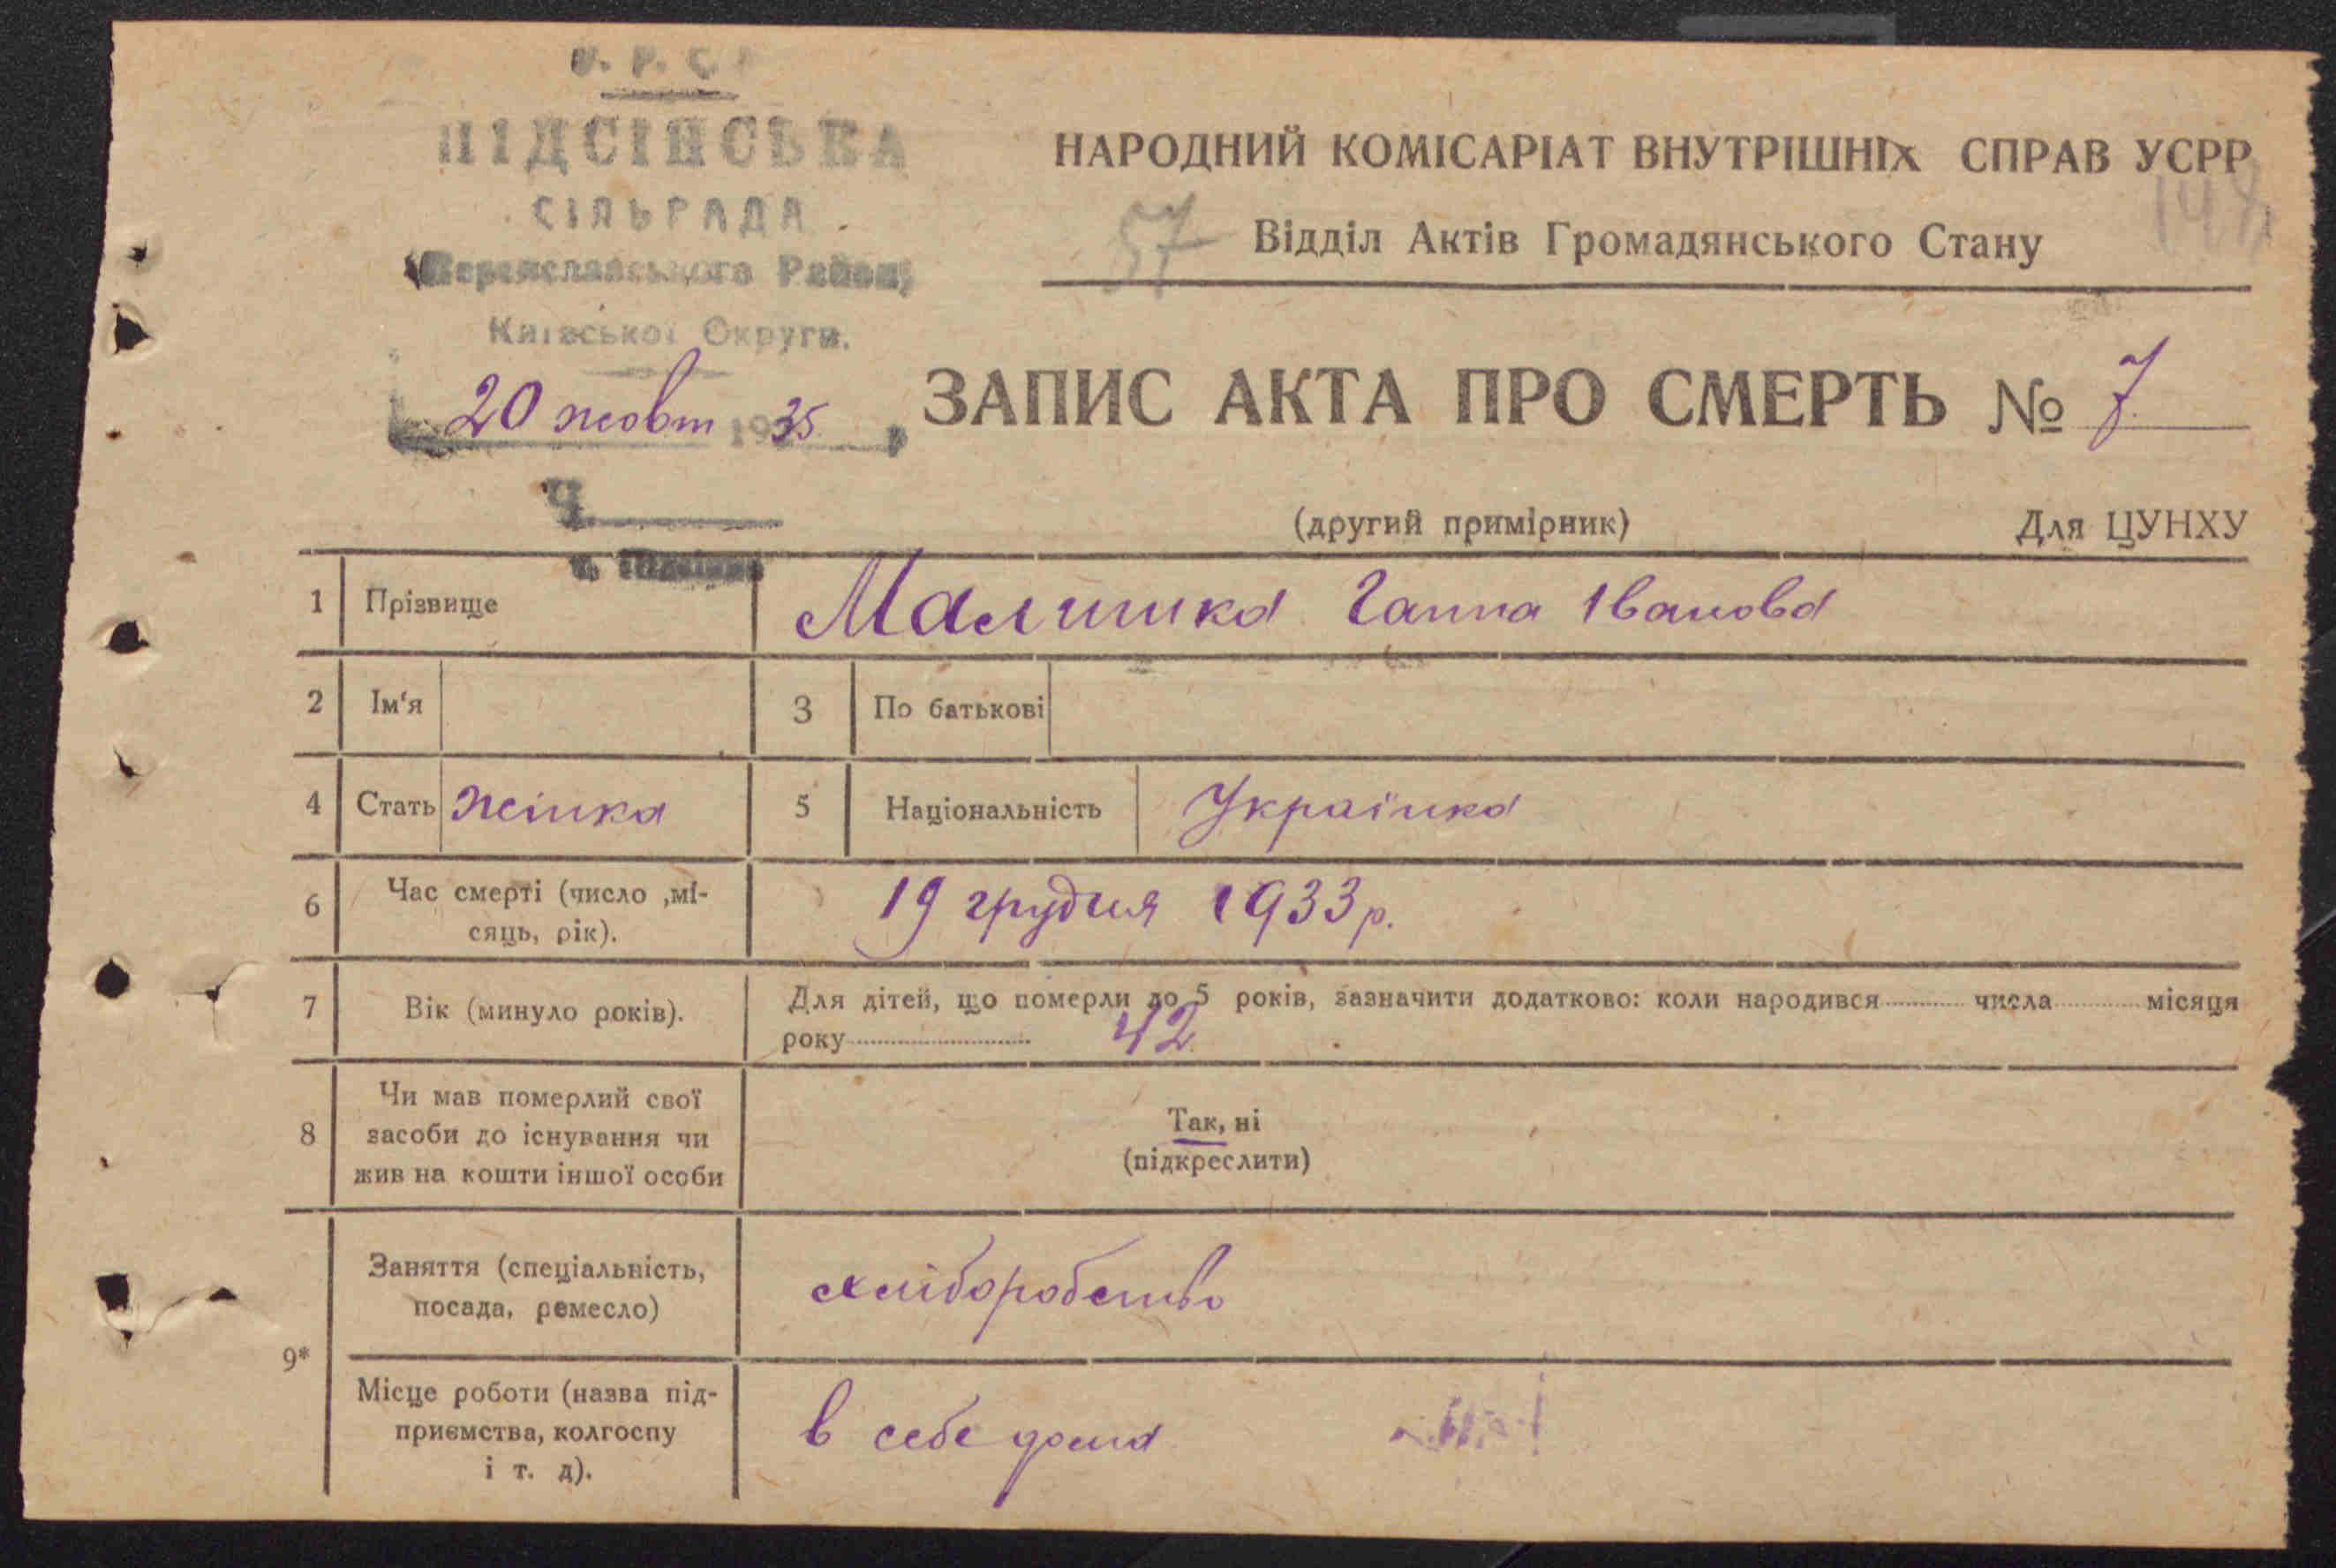 У. Р. С. Р
ПІДСІНСЬКА
СІЛЬРАДА
Переяславського Району
Київської Округи.
20 жовт 1935
Ч.
НАРОДНИЙ КОМІСАРІАТ ВНУТРІШНІХ СПРАВ УСРР
57 Відділ Актів Громадянського Стану
ЗАПИС АКТА ПРО СМЕРТЬ № 7
(другий примірник) Для ЦУНХУ
1 Прізвище Малишка Ганна Іванова
2 Ім‘я 3 По батькові
4 Стать жінка 5 Національність Українка
6 Час смерті (число ,мі-
сяць, рік). 19 грудня 1933 р.
7 Вік (минуло років). Для дітей, що померли до 5 років, зазначити додатково: коли народився числа місяця
року 42
8 Чи мав померлий свої
засоби до існування чи
жив на кошти іншої особи
Так, ні
(підкреслити)
9*
Заняття (спеціальність,
посада, ремесло)
хліборобство
Місце роботи (назва під-
приємства, колгоспу
і т. д).
в себе дома